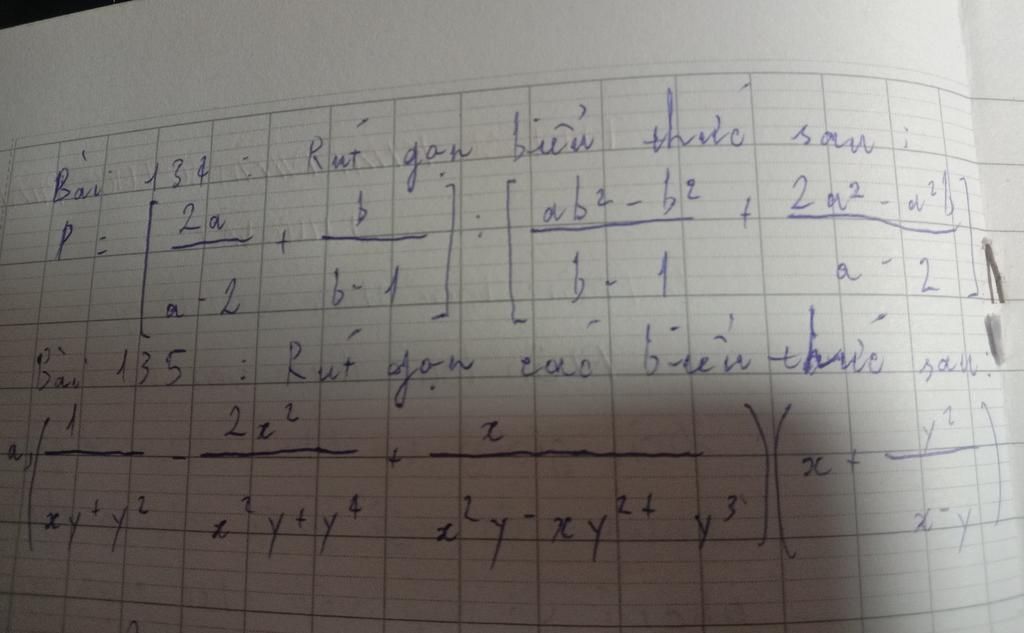 Bài 134 : Rút gọn biểu thức sau :
P = [2a/(a - 2) + b/(b - 1)] : [(ab² - b²)/(b - 1) + (2a² - a²b)/(a - 2)]
Bài 135 : Rút gọn các biểu thức sau:
a, (1/(xy + y²) - 2x²/(x²y + y⁴) + x/(x²y - xy² + y³)) (x + y²/(x - y))